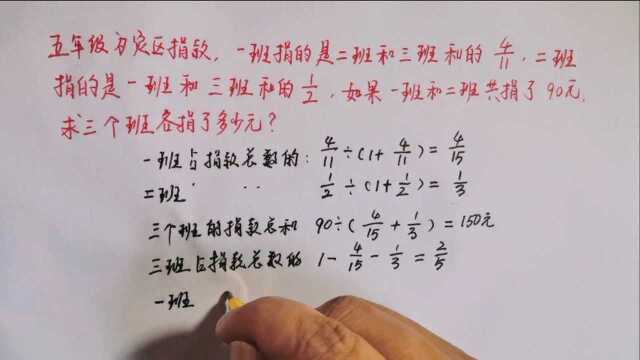 五年级为灾区捐款，一班捐的是二班和三班和的 4/11，二班
捐的是一班和三班和的 1/2，如果一班和二班共捐了90元，
求三个班各捐了多少元？
一班占捐款总数的：4/11÷(1+4/11)=4/15
二班 ‥ ‥ 1/2÷(1+1/2)=1/3
三个班的捐款总和 90÷(4/15+1/3)=150元
三班占捐款总数的 1-4/15-1/3=2/5
一班